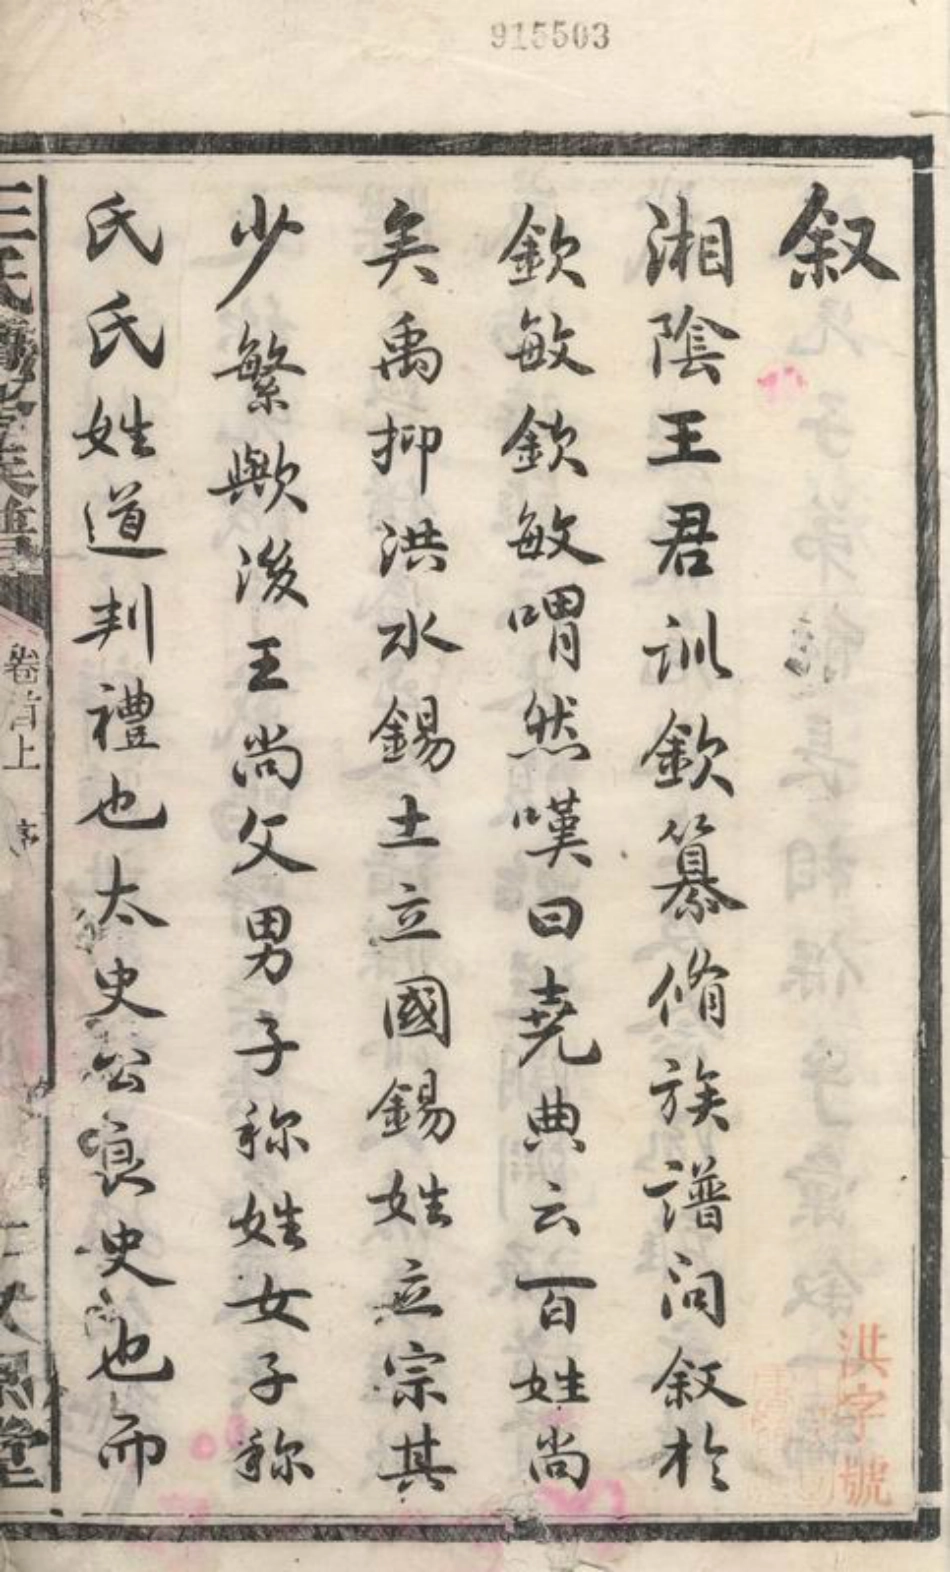 915503
叙
湘陰王君訓欽纂脩族譜问叙扵
欽敏欽敏喟然嘆曰堯典云百姓尚
矣禹抑洪水錫土立國錫姓立宗其
少繁歟後王尚父男子称姓女子称
氏氏姓道判禮也太史公良史也而
卷首上
序
洪字號